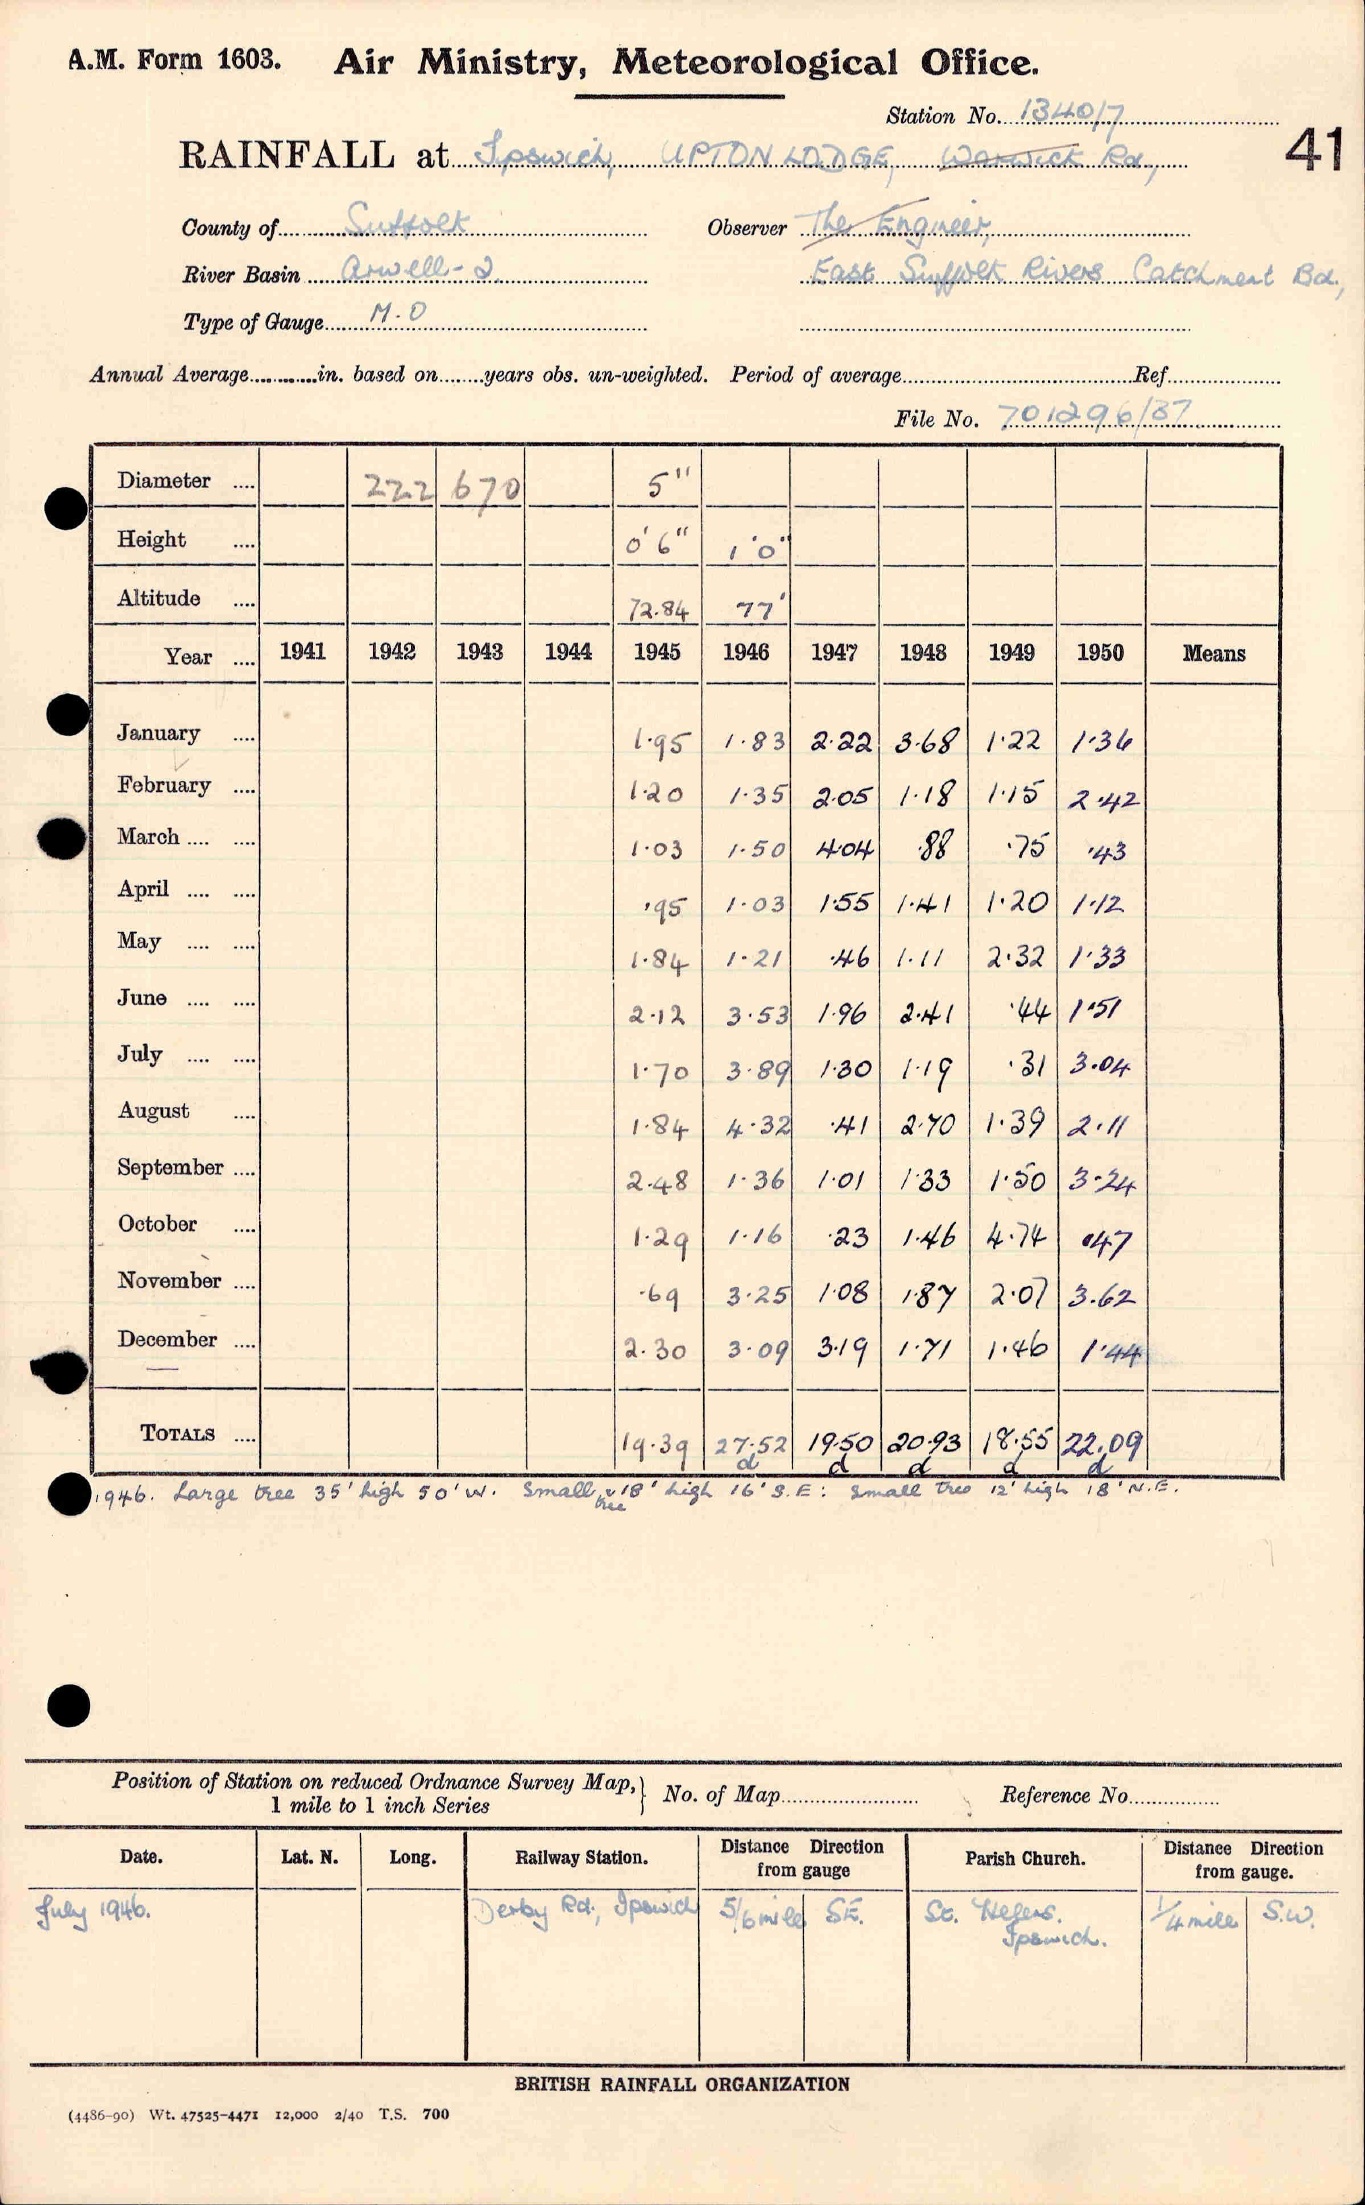 A.M. Form 1603. Air Ministry, Meteorological Office.
Station No. 1340/7
41
RAINFALL at Ipswich, UPTON LODGE, Warwick Rd,
County of Suffolk Observer The Engineer,
River Basin Orwell-2 East Suffolk Rivers Catchment Bd.,
Type of Gauge M.O
Annual Average in. based on years obs. un-weighted. Period of average Ref.
File No. 701296/37
Diameter 222 670 5"
Height 0'6" 1'0"
Altitude 72.84 77'
Year 1941 1942 1943 1944 1945 1946 1947 1948 1949 1950 Means
January 1.95 1.83 2.22 3.68 1.22 1.36
February 1.20 1.35 2.05 1.18 1.15 2.42
March 1.03 1.50 4.04 .88 .75 .43
April .95 1.03 1.55 1.41 1.20 1.12
May 1.84 1.21 .46 1.11 2.32 1.33
June 2.12 3.53 1.96 2.41 .44 1.51
July 1.70 3.89 1.30 1.19 .31 3.04
August 1.84 4.32 .41 2.70 1.39 2.11
September 2.48 1.36 1.01 1.33 1.50 3.24
October 1.29 1.16 .23 1.46 4.74 .47
November .69 3.25 1.08 1.87 2.07 3.62
December 2.30 3.09 3.19 1.71 1.46 1.44
TOTALS 19.39 27.52 19.50 20.93 18.55 22.09
d d d d d
1946. Large tree 35' high 50' W. Small tree 18' high 16' S.E: Small tree 12' high 18' N.E.
Position of Station on reduced Ordnance Survey Map, 1 mile to 1 inch Series } No. of Map Reference No.
Date. Lat. N. Long. Railway Station. Distance Direction from gauge Parish Church. Distance Direction from gauge.
July 1946. Derby Rd., Ipswich 5/6 mile SE. St. Helens. Ipswich. 1/4 mile S.W.
BRITISH RAINFALL ORGANIZATION
(4486-90) Wt. 47525-4471 12,000 2/40 T.S. 700